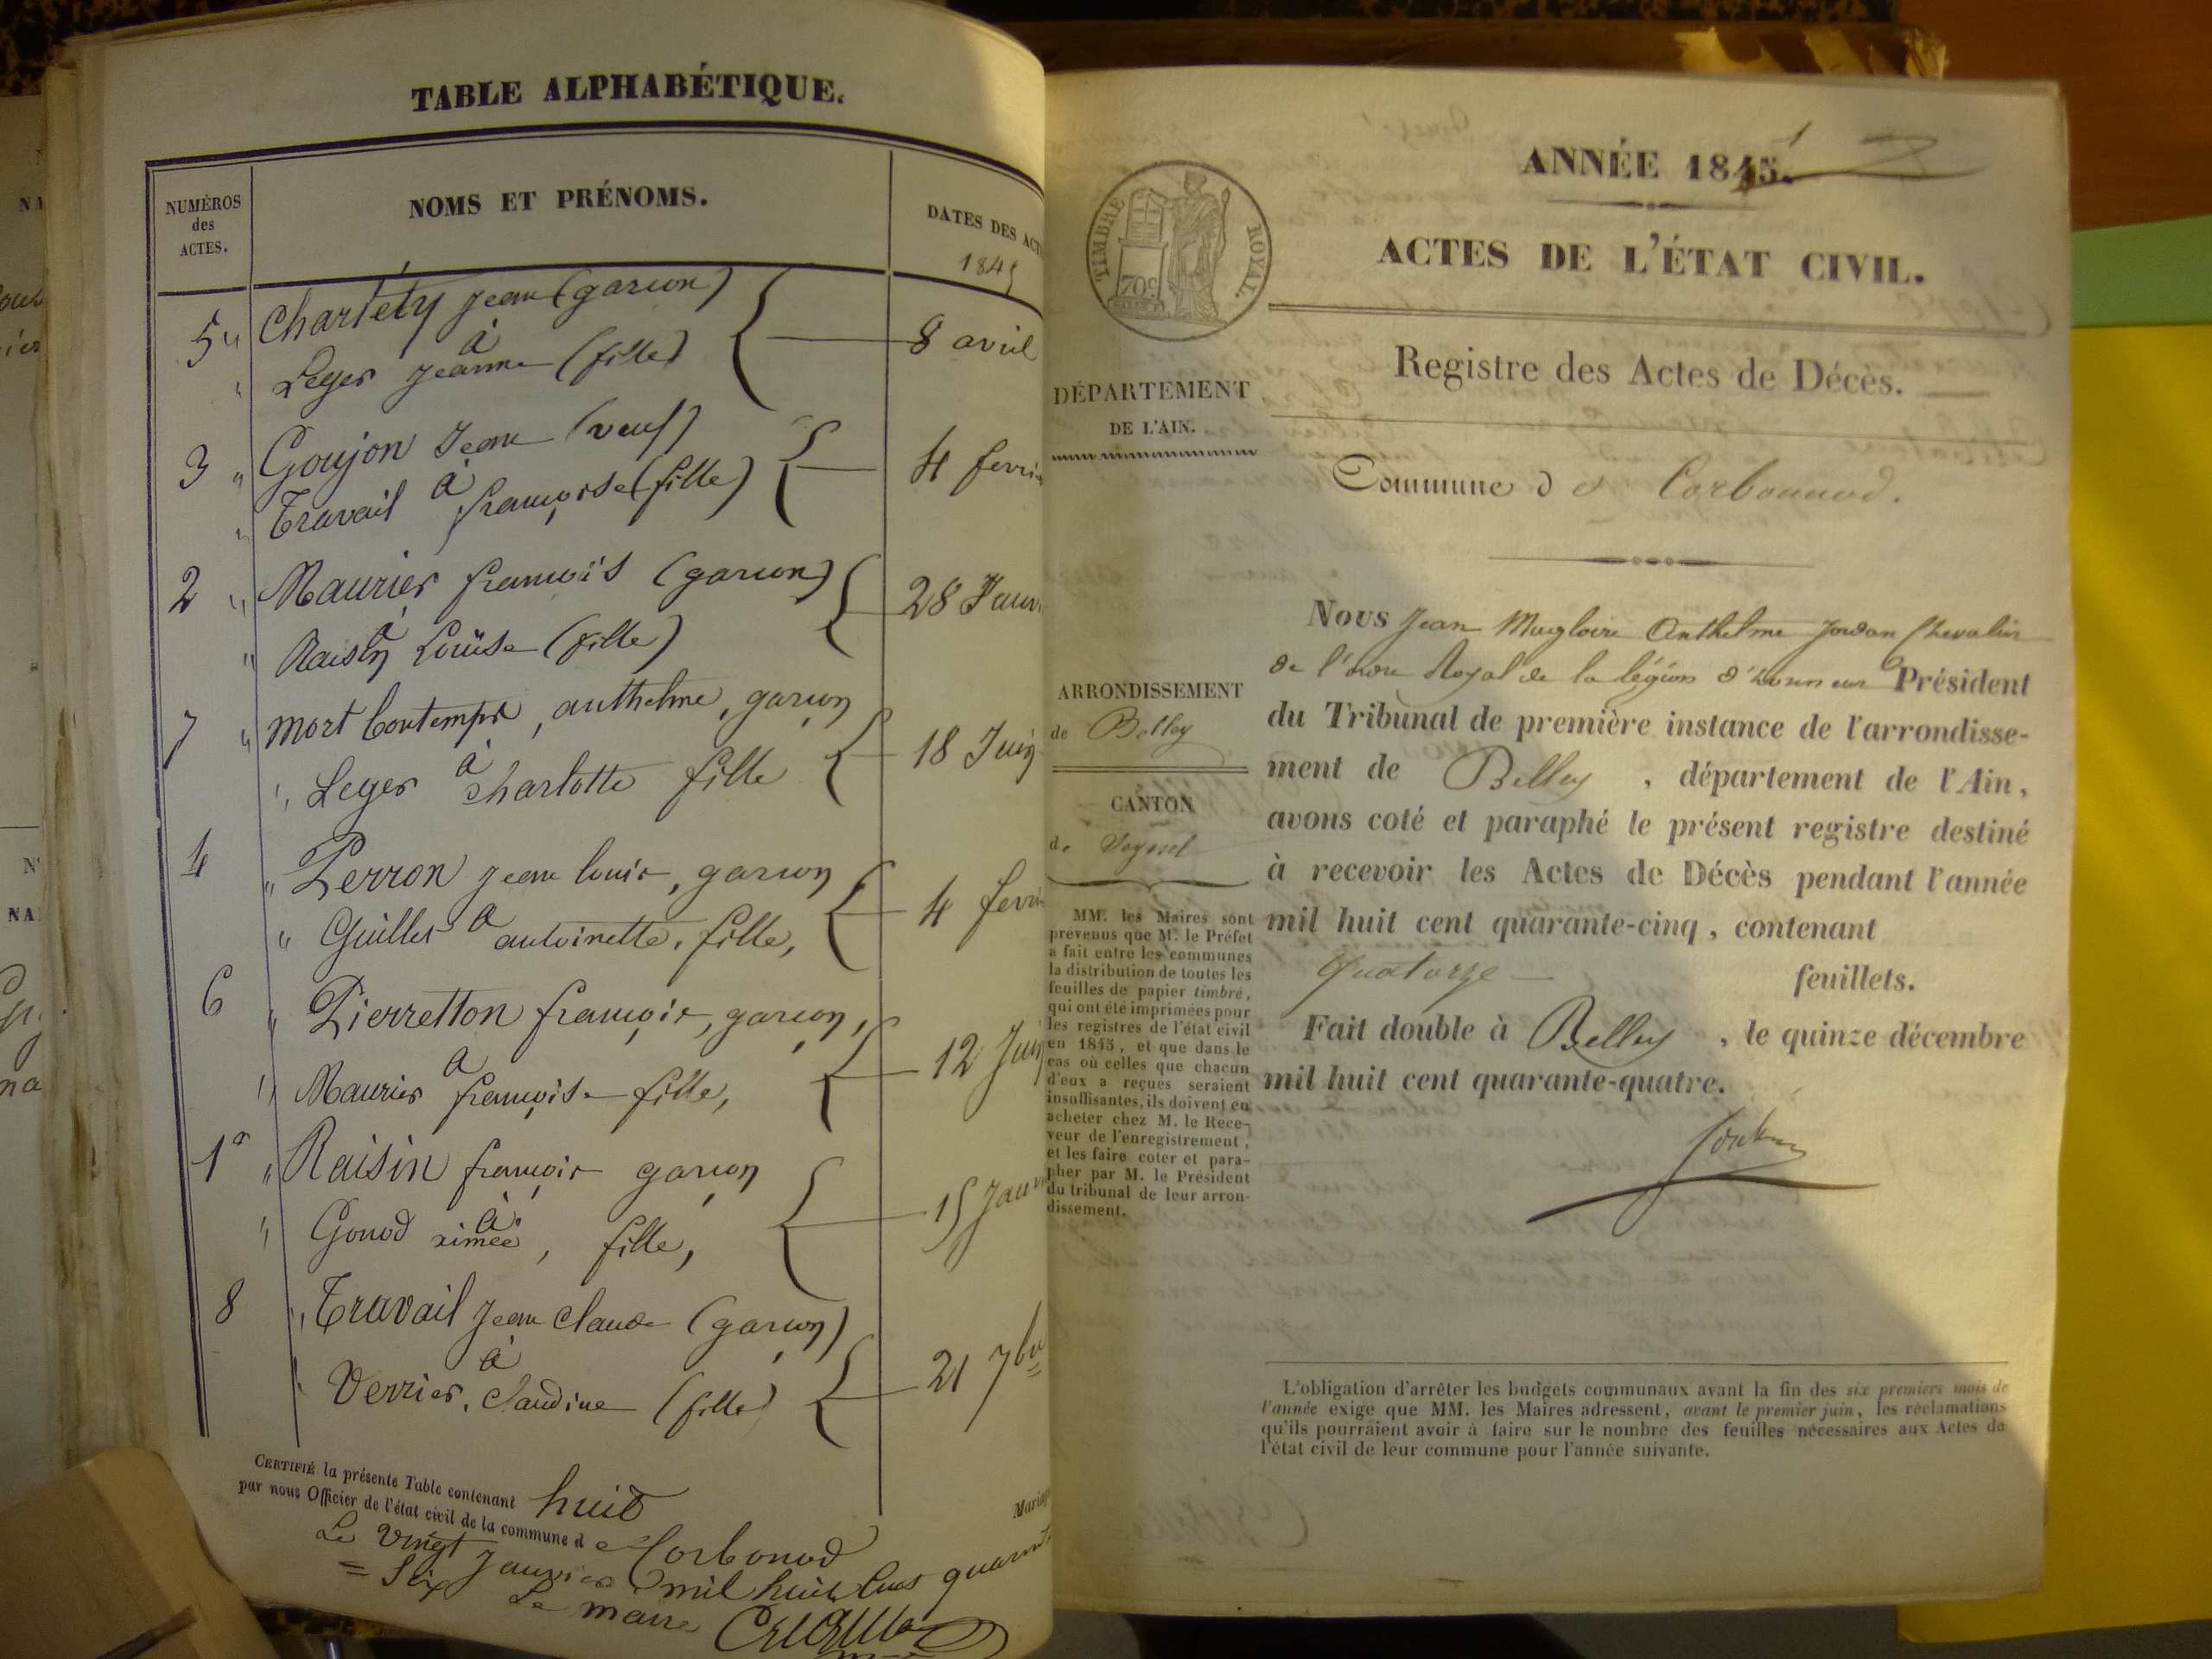 TABLE ALPHABÉTIQUE.
NUMÉROS
des
ACTES.
NOMS ET PRÉNOMS.
DATES DES ACT
1845
5 " Charlety Jean (garçon)
à
8 avril
" Leger Jeanne (fille)
3 " Goujon Jean (veuf)
à
4 fevri
" Travail françoise (fille)
2 " Maurier françois (garçon)
à
28 Janv
" Raisin Louise (fille)
7 " Mort Contemps, anthelme, garçon
à
18 Juin
" Leger charlotte fille
4 " Perron Jean louis, garçon
à
4 fevri
" Guiller antoinette, fille,
6 " Pierretton françois, garçon,
à
12 Juin
" Maurier françoise fille,
1er " Raisin françois garçon
à
15 Janv
" Gonod aimée, fille,
8 " Travail Jean claude (garçon)
à
21 7bre
" Verrier, claudine (fille)
CERTIFIÉ la présente Table contenant huit Mariag
par nous Officier de l'état civil de la commune d e Corbonod
Le vingt Janvier mil huit cent quarante
= Six Le maire
ANNÉE 1845.
TIMBRE ROYAL.
70c
ACTES DE L'ÉTAT CIVIL.
Registre des Actes de Décès.
DÉPARTEMENT
DE L'AIN.
Commune d e Corbonnod.
ARRONDISSEMENT
de Belley
CANTON
de Seyssel
MM. les Maires sont
prévenus que M. le Préfet
a fait entre les communes
la distribution de toutes les
feuilles de papier timbré,
qui ont été imprimées pour
les registres de l'état civil
en 1845, et que dans le
cas où celles que chacun
d'eux a reçues seraient
insuffisantes, ils doivent en
acheter chez M. le Rece-
veur de l'enregistrement,
et les faire coter et para-
pher par M. le Président
du tribunal de leur arron-
dissement.
NOUS Jean Magloire Anthelme Jordan Chevalier
de l'ordre Royal de la légion d'honneur Président
du Tribunal de première instance de l'arrondisse-
ment de Belley, département de l'Ain,
avons coté et paraphé le présent registre destiné
à recevoir les Actes de Décès pendant l'année
mil huit cent quarante-cinq, contenant
Quatorze feuillets.
Fait double à Belley, le quinze décembre
mil huit cent quarante-quatre.
Jordan
L'obligation d'arrêter les budgets communaux avant la fin des six premiers mois de
l'année exige que MM. les Maires adressent, avant le premier juin, les réclamations
qu'ils pourraient avoir à faire sur le nombre des feuilles nécessaires aux Actes de
l'état civil de leur commune pour l'année suivante.